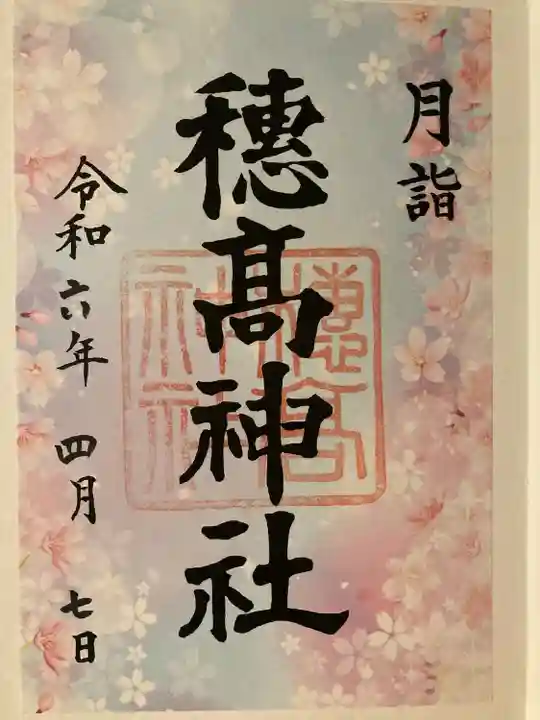 月詣
穂髙神社
穂髙神社
令和六年 四月 七日